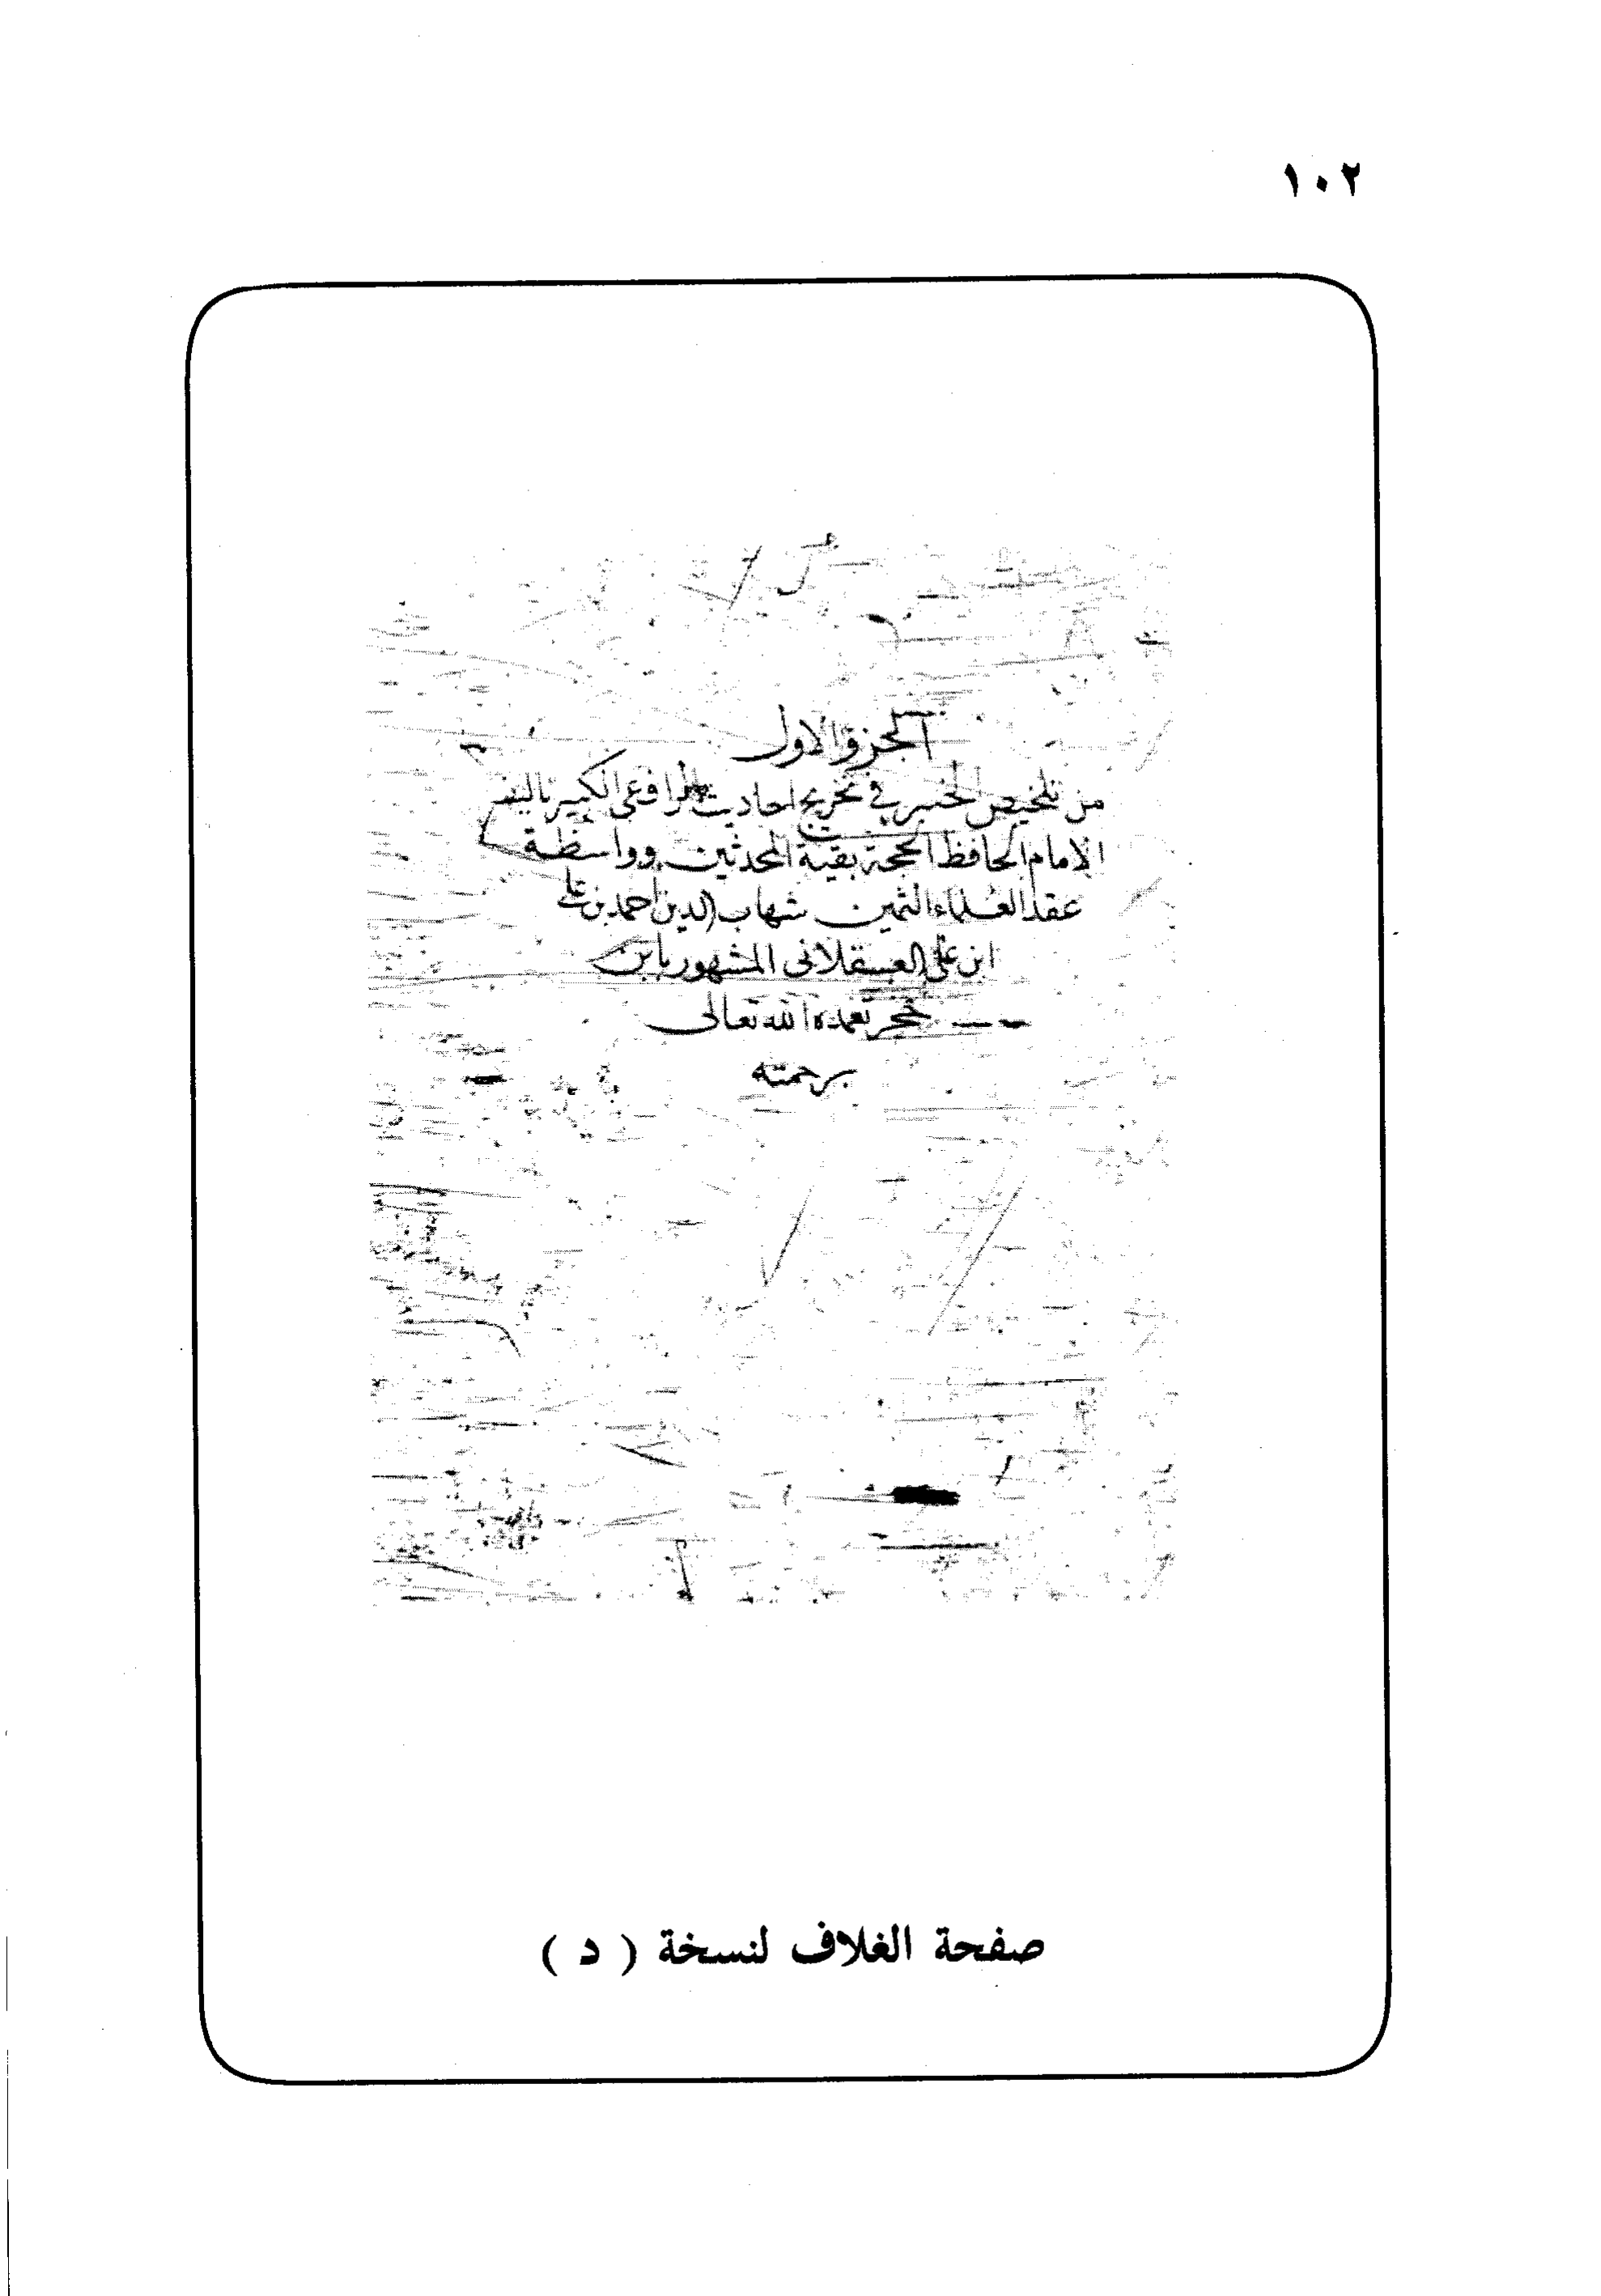 ١٠٢
الجزؤ الاول
من تلخيص الخبير في تخريج احاديث الرافعى الكبير تاليف
الامام الحافظ الحجة بقية المحدثين وواسطة
عقد العلماء الثمين شهاب الدين احمد بن على
ابن على العسقلانى المشهور بابن
حجر تغمده الله تعالى
برحمته
صفحة الغلاف لنسخة ( د )